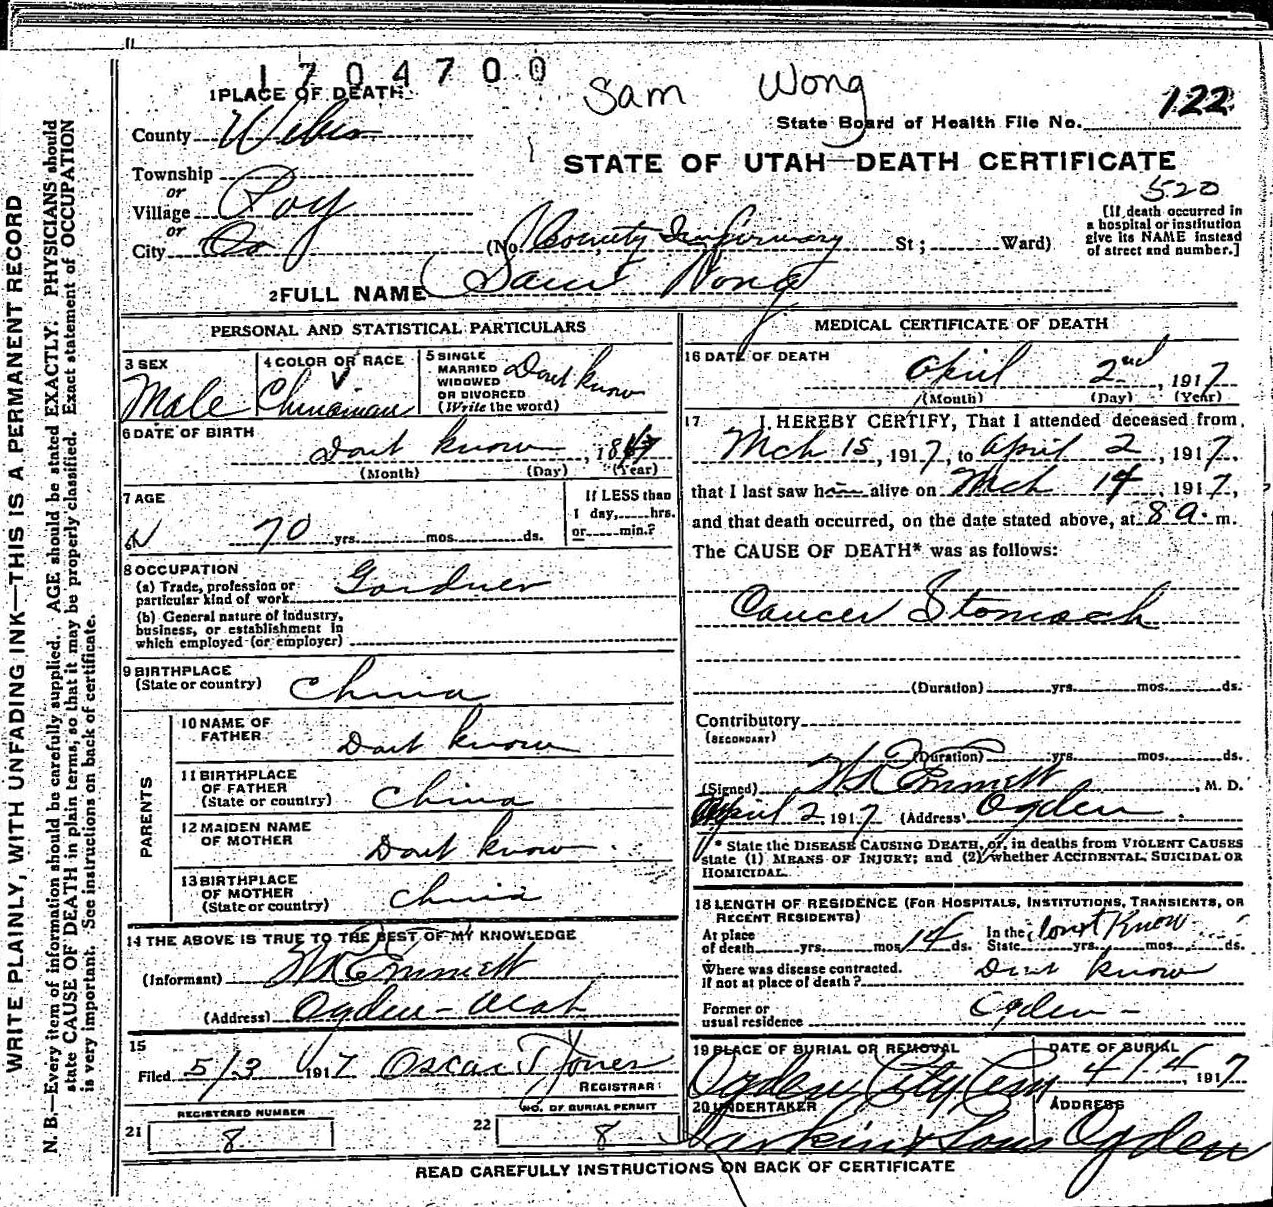 1704700
Sam Wong
1 PLACE OF DEATH
State Board of Health File No. 122
County Weber
STATE OF UTAH—DEATH CERTIFICATE
Township
or
Village Roy
or
City
520
(No. County Infirmary St; Ward)
[If death occurred in
a hospital or institution
give its NAME instead
of street and number.]
2 FULL NAME Sam Wong
PERSONAL AND STATISTICAL PARTICULARS
3 SEX
Male
4 COLOR OR RACE
Chinaman
5 SINGLE
MARRIED
WIDOWED
OR DIVORCED
(Write the word)
Dont know
6 DATE OF BIRTH
Dont know, 1847
(Month) (Day) (Year)
7 AGE
70 yrs. mos. ds.
If LESS than
1 day, hrs.
or min.?
8 OCCUPATION
(a) Trade, profession or
particular kind of work Gardner
(b) General nature of industry,
business, or establishment in
which employed (or employer)
9 BIRTHPLACE
(State or country) China
PARENTS
10 NAME OF
FATHER Dont know
11 BIRTHPLACE
OF FATHER
(State or country) China
12 MAIDEN NAME
OF MOTHER Dont know
13 BIRTHPLACE
OF MOTHER
(State or country) China
14 THE ABOVE IS TRUE TO THE BEST OF MY KNOWLEDGE
(Informant) Emmett
(Address) Ogden - Utah
15
Filed 5/3 1917 Oscar Jones
REGISTRAR
REGISTERED NUMBER
21 8
NO. OF BURIAL PERMIT
22 8
MEDICAL CERTIFICATE OF DEATH
16 DATE OF DEATH
April 2nd, 1917
(Month) (Day) (Year)
17 I HEREBY CERTIFY, That I attended deceased from
Mch 15, 1917, to April 2, 1917,
that I last saw him alive on Mch 14, 1917,
and that death occurred, on the date stated above, at 8 a. m.
The CAUSE OF DEATH* was as follows:
Cancer Stomach
(Duration) yrs. mos. ds.
Contributory
(SECONDARY)
(Duration) yrs. mos. ds.
(Signed) Emmett, M. D.
April 2, 1917 (Address) Ogden
* State the DISEASE CAUSING DEATH, or, in deaths from VIOLENT CAUSES
state (1) MEANS OF INJURY; and (2) whether ACCIDENTAL, SUICIDAL OR
HOMICIDAL.
18 LENGTH OF RESIDENCE (FOR HOSPITALS, INSTITUTIONS, TRANSIENTS, OR
RECENT RESIDENTS)
At place
of death yrs. mos. 14 ds.
In the
State Dont Know yrs. mos. ds.
Where was disease contracted.
If not at place of death? Dont know
Former or
usual residence Ogden -
19 PLACE OF BURIAL OR REMOVAL
Ogden City Cem
DATE OF BURIAL
4/4, 1917
20 UNDERTAKER
Larkin & Sons
ADDRESS
Ogden
READ CAREFULLY INSTRUCTIONS ON BACK OF CERTIFICATE
WRITE PLAINLY, WITH UNFADING INK—THIS IS A PERMANENT RECORD
N. B.—Every item of information should be carefully supplied. AGE should be stated EXACTLY. PHYSICIANS should
state CAUSE OF DEATH in plain terms, so that it may be properly classified. Exact statement of OCCUPATION
is very important. See instructions on back of certificate.